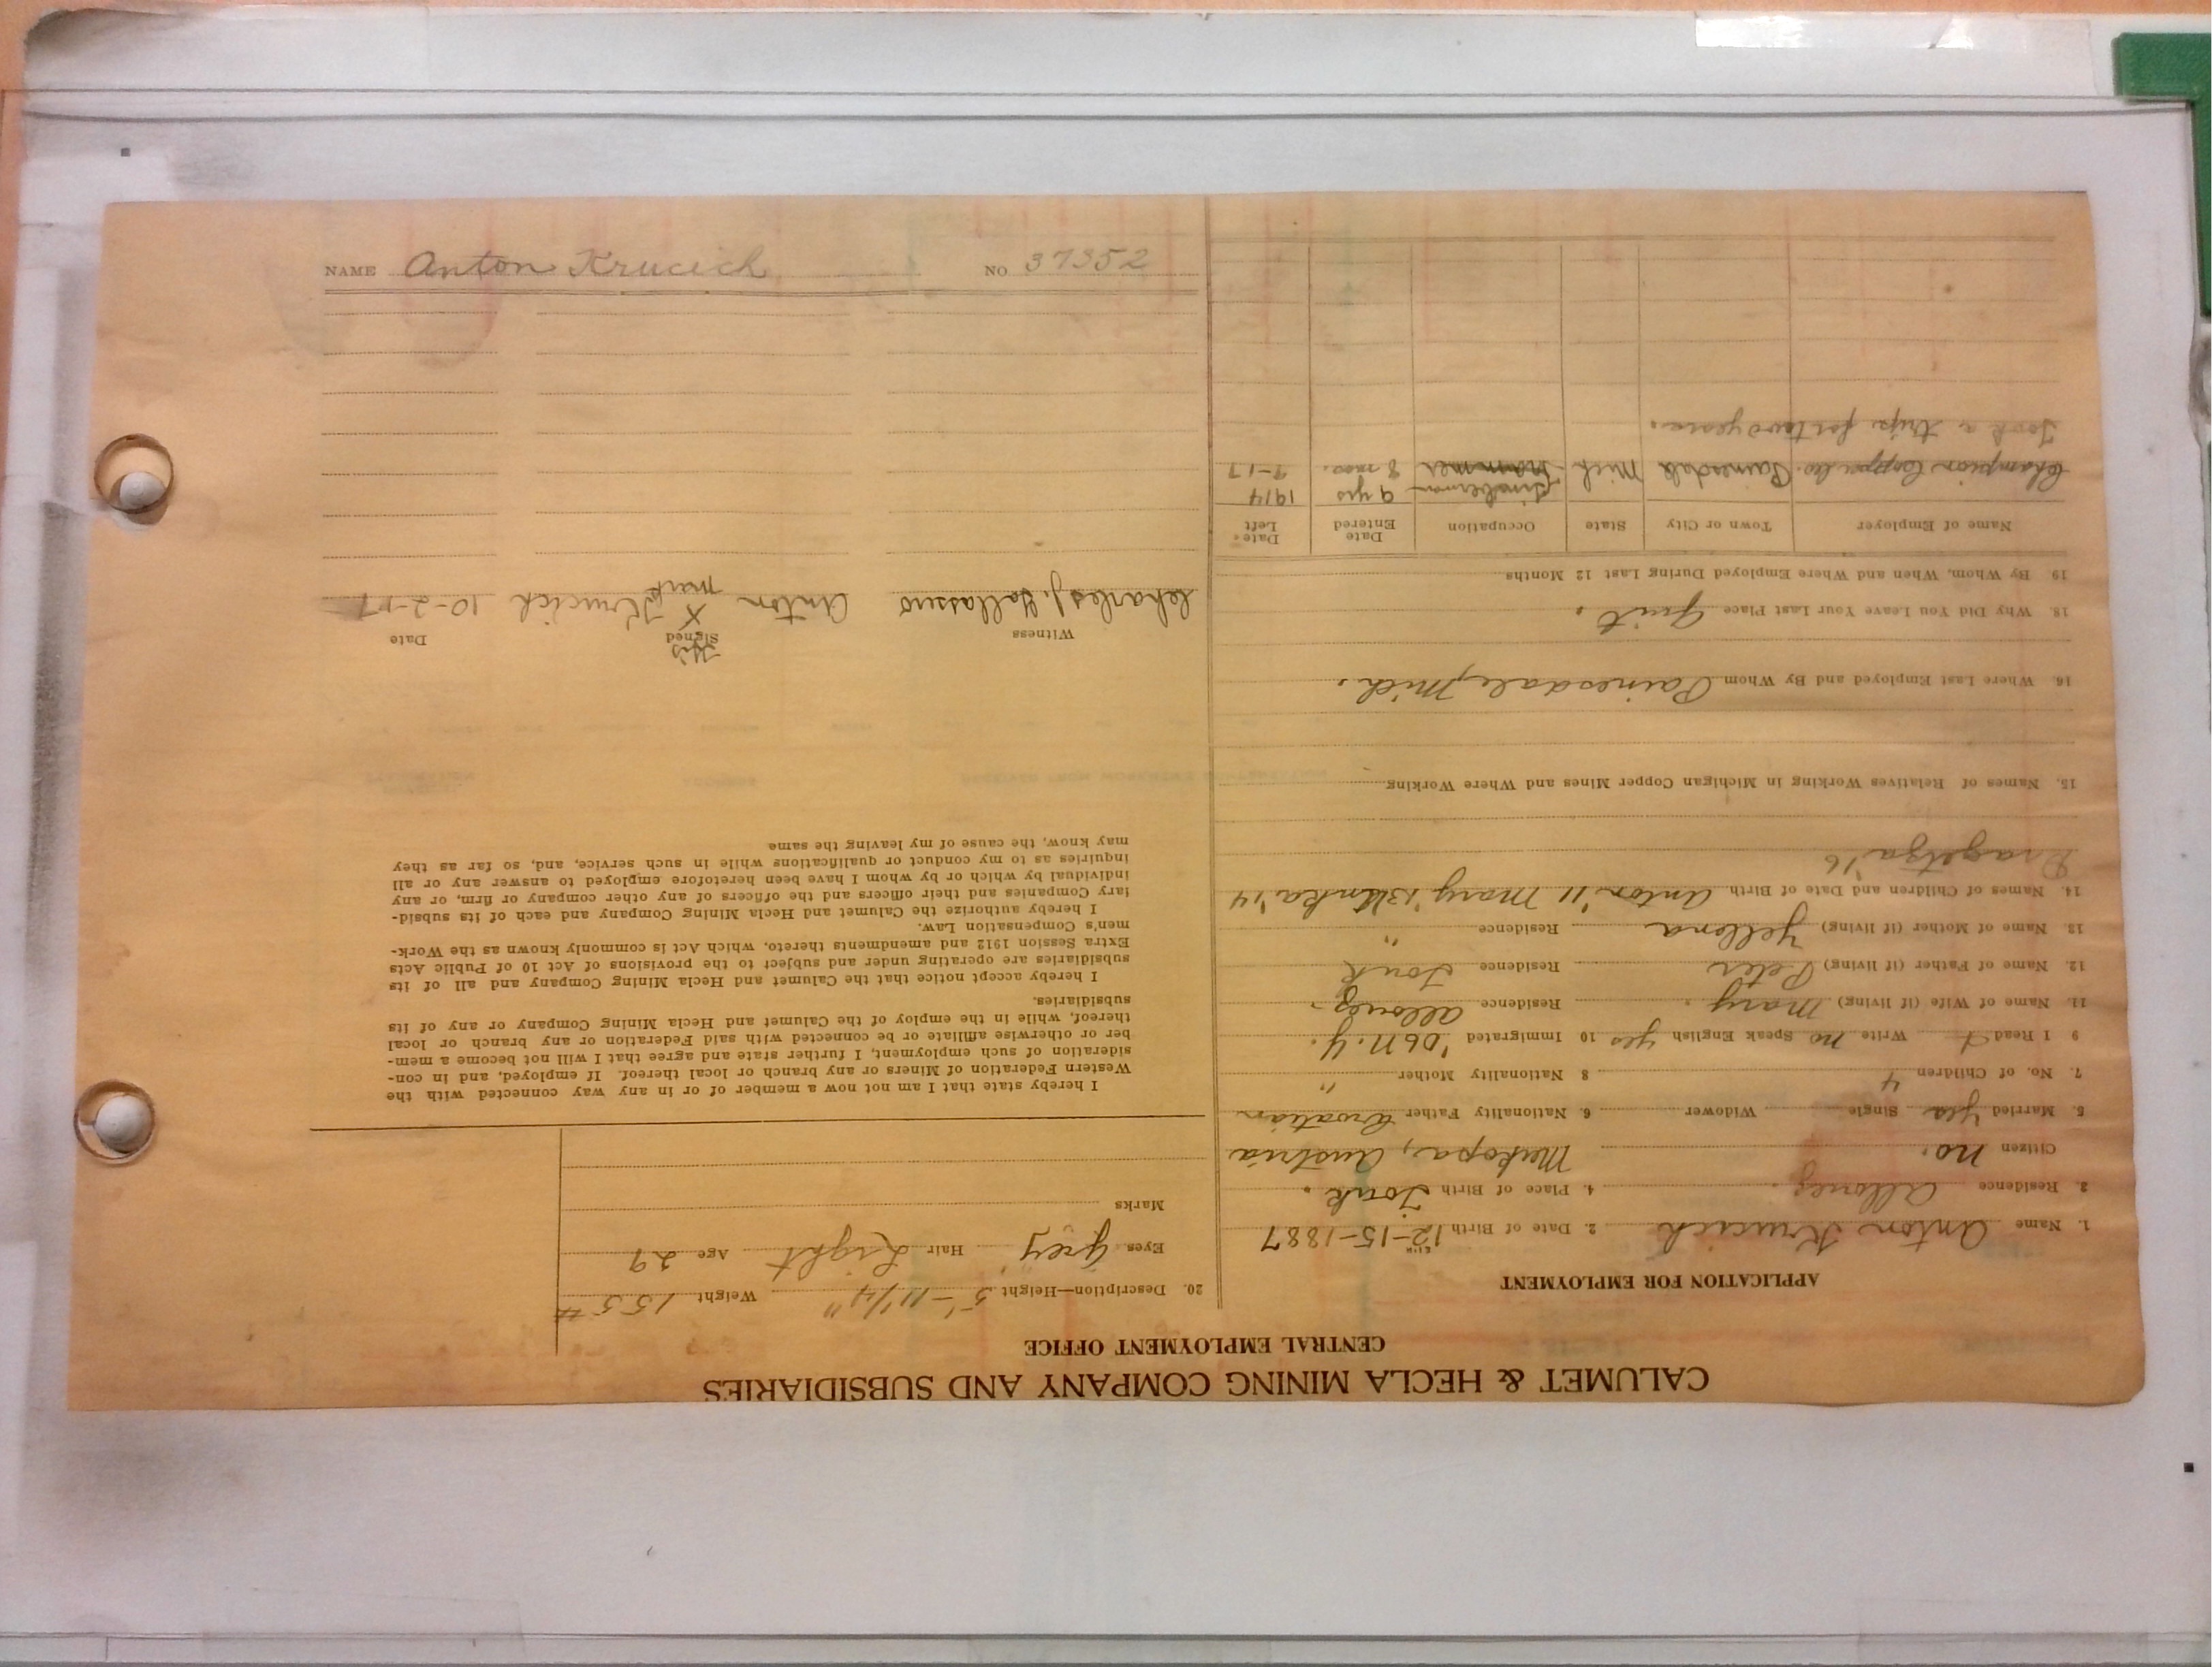 CALUMET & HECLA MINING COMPANY AND SUBSIDIARIES
CENTRAL EMPLOYMENT OFFICE
APPLICATION FOR EMPLOYMENT
1. Name Anton Krucich 2. Date of Birth 12-15-1887
3. Residence Allouez. 4. Place of Birth
Citizen no. Austria
5. Married yes Single Widower 6. Nationality Father Croatian
7. No. of Children 4 8 Nationality Mother "
9 I Read Write no Speak English yes 10 Immigrated '06 N.Y.
11. Name of Wife (if living) Mary. Residence Allouez.
12. Name of Father (if living) Peter Residence
13. Name of Mother (if living) Yellena Residence "
14. Names of Children and Date of Birth Anton '11 Mary '13 '14
'16
15. Names of Relatives Working in Michigan Copper Mines and Where Working
16. Where Last Employed and By Whom Painesdale, Mich.
18. Why Did You Leave Your Last Place Quit.
19 By Whom, When and Where Employed During Last 12 Months
Name of Employer Town or City State Occupation Date Entered Date Left
Timberman 9 yrs 1914
Champion Copper Co. Painesdale Mich 8 mos. 9-17
Took a trip for two years.
20. Description—Height 5'-11 1/4" Weight 155#
Eyes Grey Hair Light Age 29
Marks
I hereby state that I am not now a member of or in any way connected with the
Western Federation of Miners or any branch or local thereof. If employed, and in con-
sideration of such employment, I further state and agree that I will not become a mem-
ber or otherwise affiliate or be connected with said Federation or any branch or local
thereof, while in the employ of the Calumet and Hecla Mining Company or any of its
subsidiaries.
I hereby accept notice that the Calumet and Hecla Mining Company and all of its
subsidiaries are operating under and subject to the provisions of Act 10 of Public Acts
Extra Session 1912 and amendments thereto, which Act is commonly known as the Work-
men's Compensation Law.
I hereby authorize the Calumet and Hecla Mining Company and each of its subsid-
iary Companies and their officers and the officers of any other company or firm, or any
individual by which or by whom I have been heretofore employed to answer any or all
inquiries as to my conduct or qualifications while in such service, and, so far as they
may know, the cause of my leaving the same
Witness Signed Date
His
Charles J. Anton X Krucich 10-2-17
mark
NAME Anton Krucich NO 37352